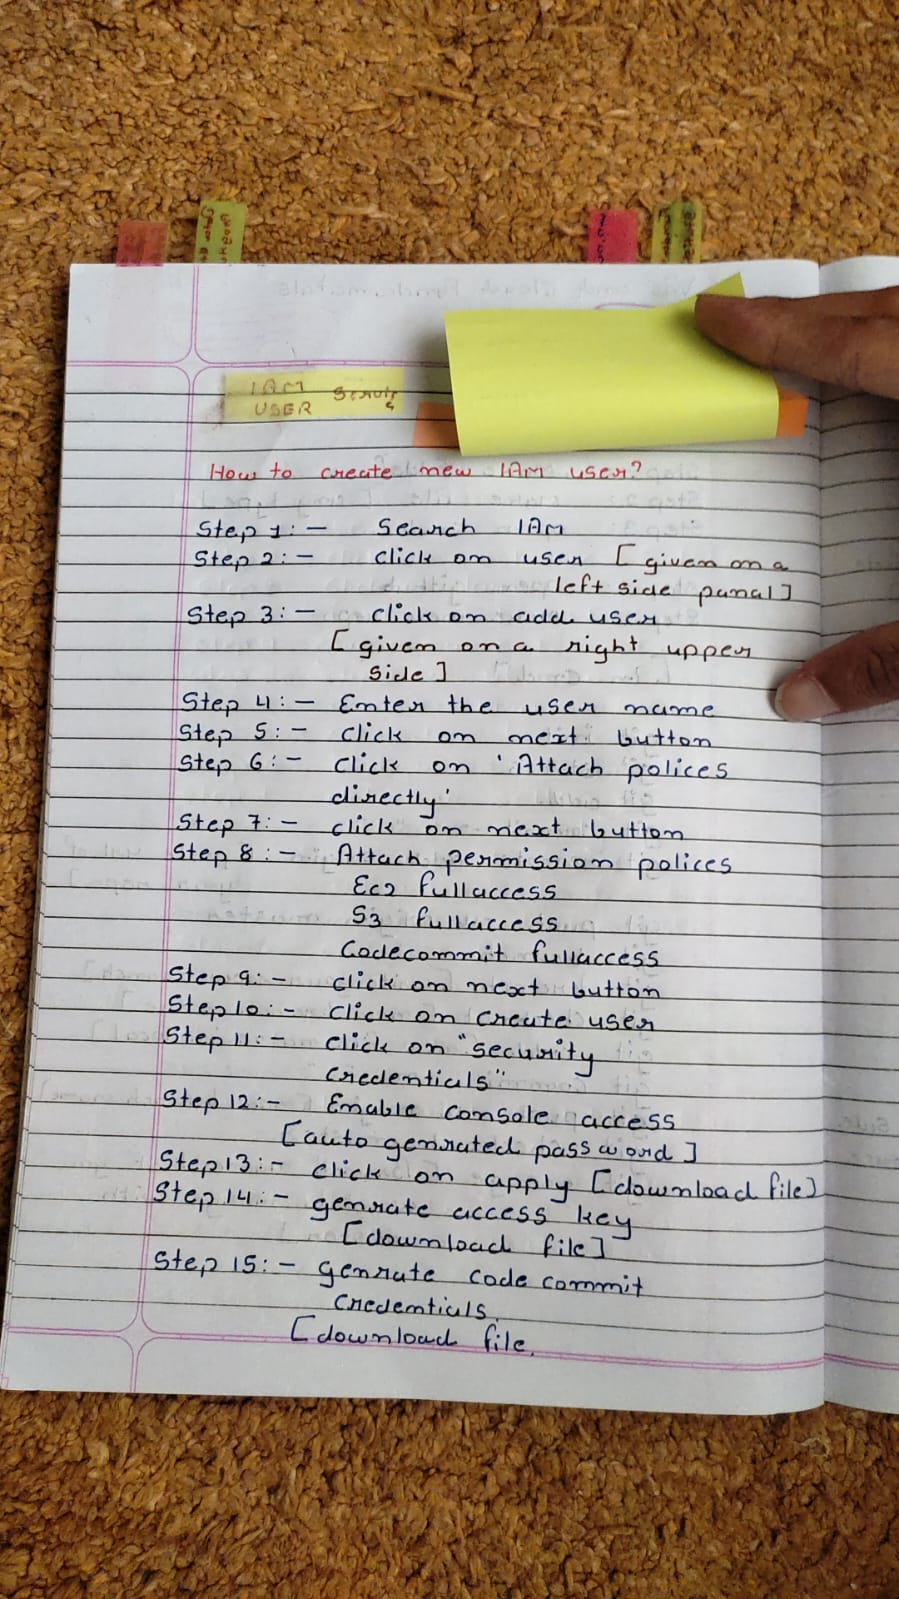 IAM
USER Service
How to create new IAM user?
Step 1:- Search IAM
Step 2:- click on user [given on a
left side panal]
Step 3:- click on add user
[given on a right upper
side]
Step 4:- Enter the user name
Step 5:- click on next button
Step 6:- click on 'Attach polices
directly'
Step 7:- click on next button
Step 8:- Attach permission polices
Ec2 fullaccess
S3 fullaccess
Codecommit fullaccess
Step 9:- click on next button
Step10:- click on create user
Step 11:- click on "security
credentials"
Step 12:- Enable console access
[auto genrated password]
Step13:- click on apply [download file]
Step 14:- genrate access key
[download file]
Step 15:- genrate code commit
credentials
[download file.